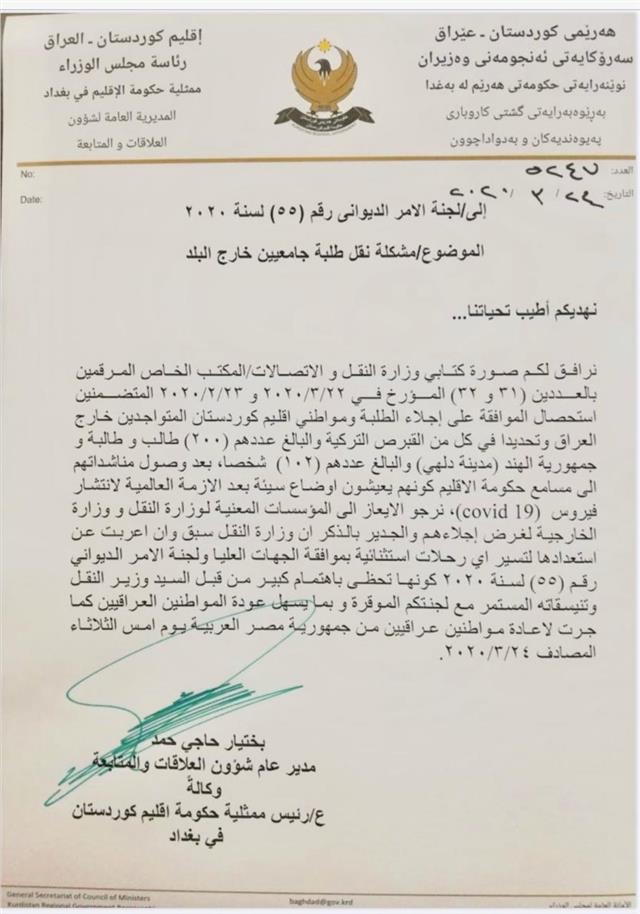 إقليم كوردستان - العراق
رئاسة مجلس الوزراء
ممثلية حكومة الإقليم في بغداد
المديرية العامة لشؤون
العلاقات و المتابعة
هەرێمی کوردستان - عێراق
سەرۆکایەتی ئەنجومەنی وەزیران
نوێنەرایەتی حکومەتی هەرێم لە بەغدا
بەڕێوەبەرایەتی گشتی کاروباری
پەیوەندیەکان و بەدواداچوون
No:
العدد:
Date:
التاريخ:
إلى/لجنة الامر الديوانى رقم (٥٥) لسنة ٢٠٢٠
الموضوع/مشكلة نقل طلبة جامعيين خارج البلد
نهديكم أطيب تحياتنا...
نرافق لكم صورة كتابي وزارة النقل و الاتصالات/المكتب الخاص المرقمين
بالعددين (٣١ و ٣٢) المؤرخ في ٢٠٢٠/٣/٢٢ و ٢٠٢٠/٢/٢٣ المتضمنين
استحصال الموافقة على إجلاء الطلبة ومواطني اقليم كوردستان المتواجدين خارج
العراق وتحديدا في كل من القبرص التركية والبالغ عددهم (٢٠٠) طالب و طالبة و
جمهورية الهند (مدينة دلهي) والبالغ عددهم (١٠٢) شخصا، بعد وصول مناشداتهم
الى مسامع حكومة الاقليم كونهم يعيشون اوضاع سيئة بعد الازمة العالمية لانتشار
فيروس (covid 19)، نرجو الايعاز الى المؤسسات المعنية لوزارة النقل و وزارة
الخارجية لغرض إجلاءهم والجدير بالذكر ان وزارة النقل سبق وان اعربت عن
استعدادها لتسير اي رحلات استثنائية بموافقة الجهات العليا ولجنة الامر الديواني
رقم (٥٥) لسنة ٢٠٢٠ كونها تحظى باهتمام كبير من قبل السيد وزير النقل
وتنيسقاته المستمر مع لجنتكم الموقرة و بما يسهل عودة المواطنين العراقيين كما
جرت لاعادة مواطنين عراقيين من جمهورية مصر العربية يوم امس الثلاثاء
المصادف ٢٠٢٠/٣/٢٤.
بختيار حاجي حمد
مدير عام شؤون العلاقات والمتابعة
وكالةً
ع/رئيس ممثلية حكومة اقليم كوردستان
في بغداد
General Secretariat of Council of Ministers
baghdad@gov.krd